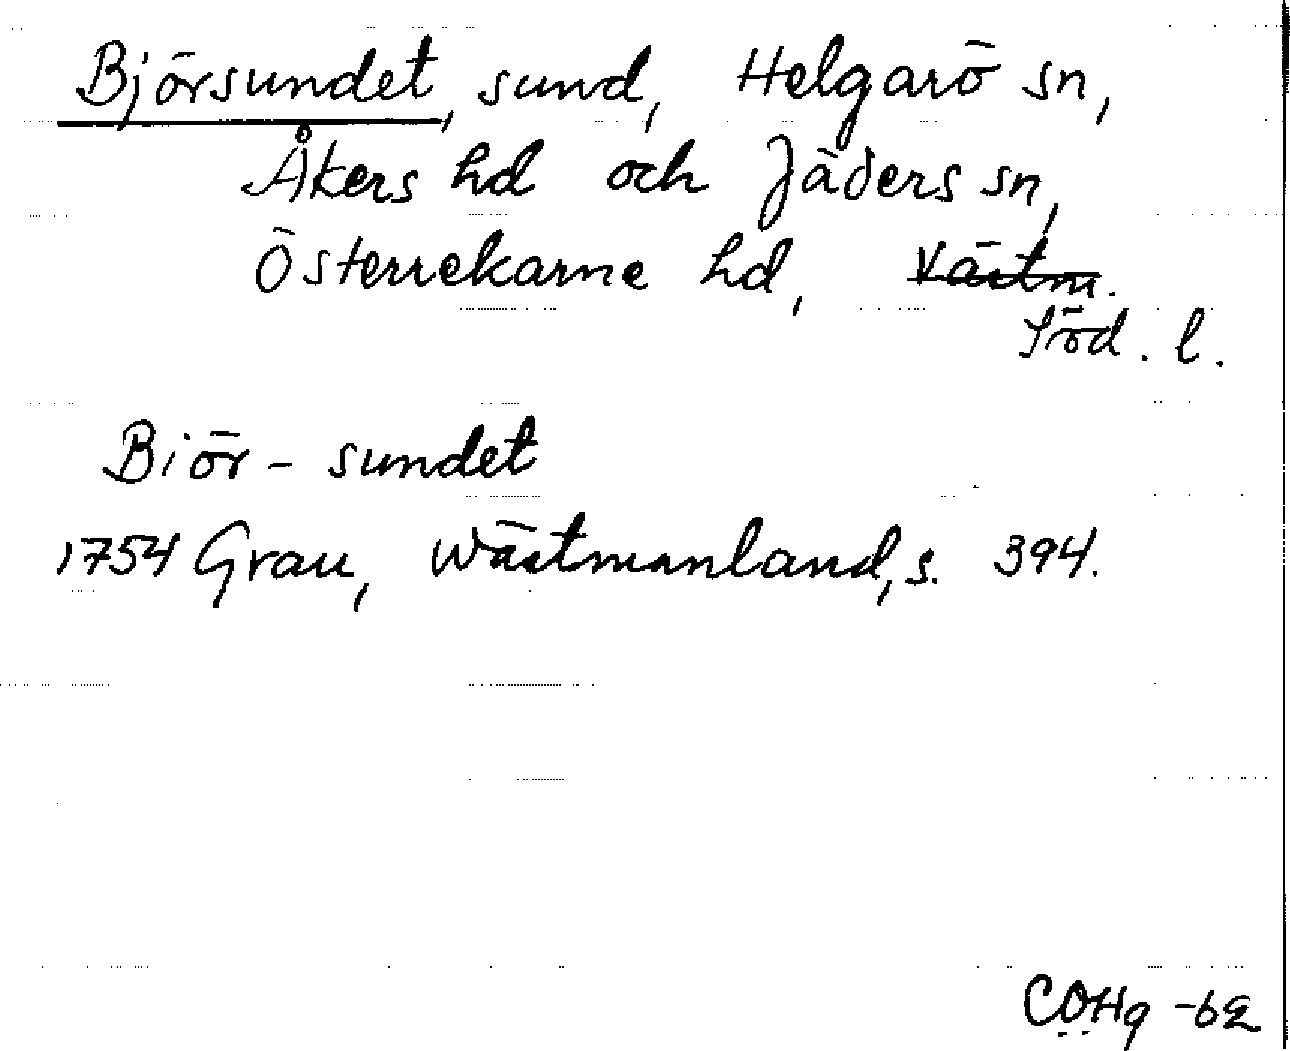 Björsundet, sund, Helgarö sn,
Åkers hd och Jäders sn,
Österrekarne hd, Västm.
Söd. l.
Biör-sundet
1754 Grau, Wästmanland, s. 394.
COHg -62